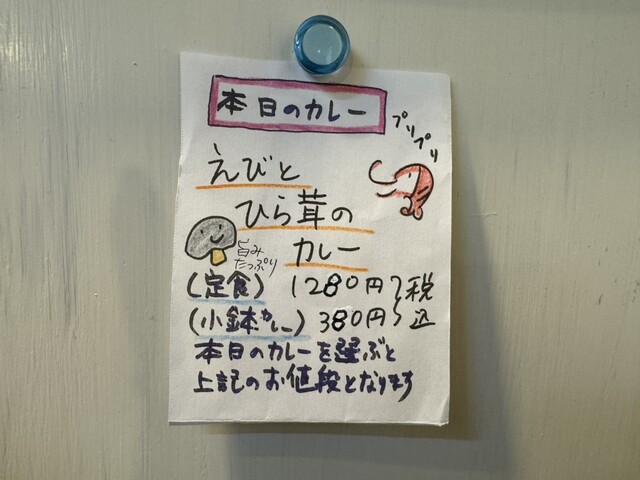 本日のカレー
プリプリ
えびと
ひら茸の
カレー
旨み
たっぷり
(定食) 1280円
(小鉢カレー) 380円
税込
本日のカレーを選ぶと
上記のお値段となります